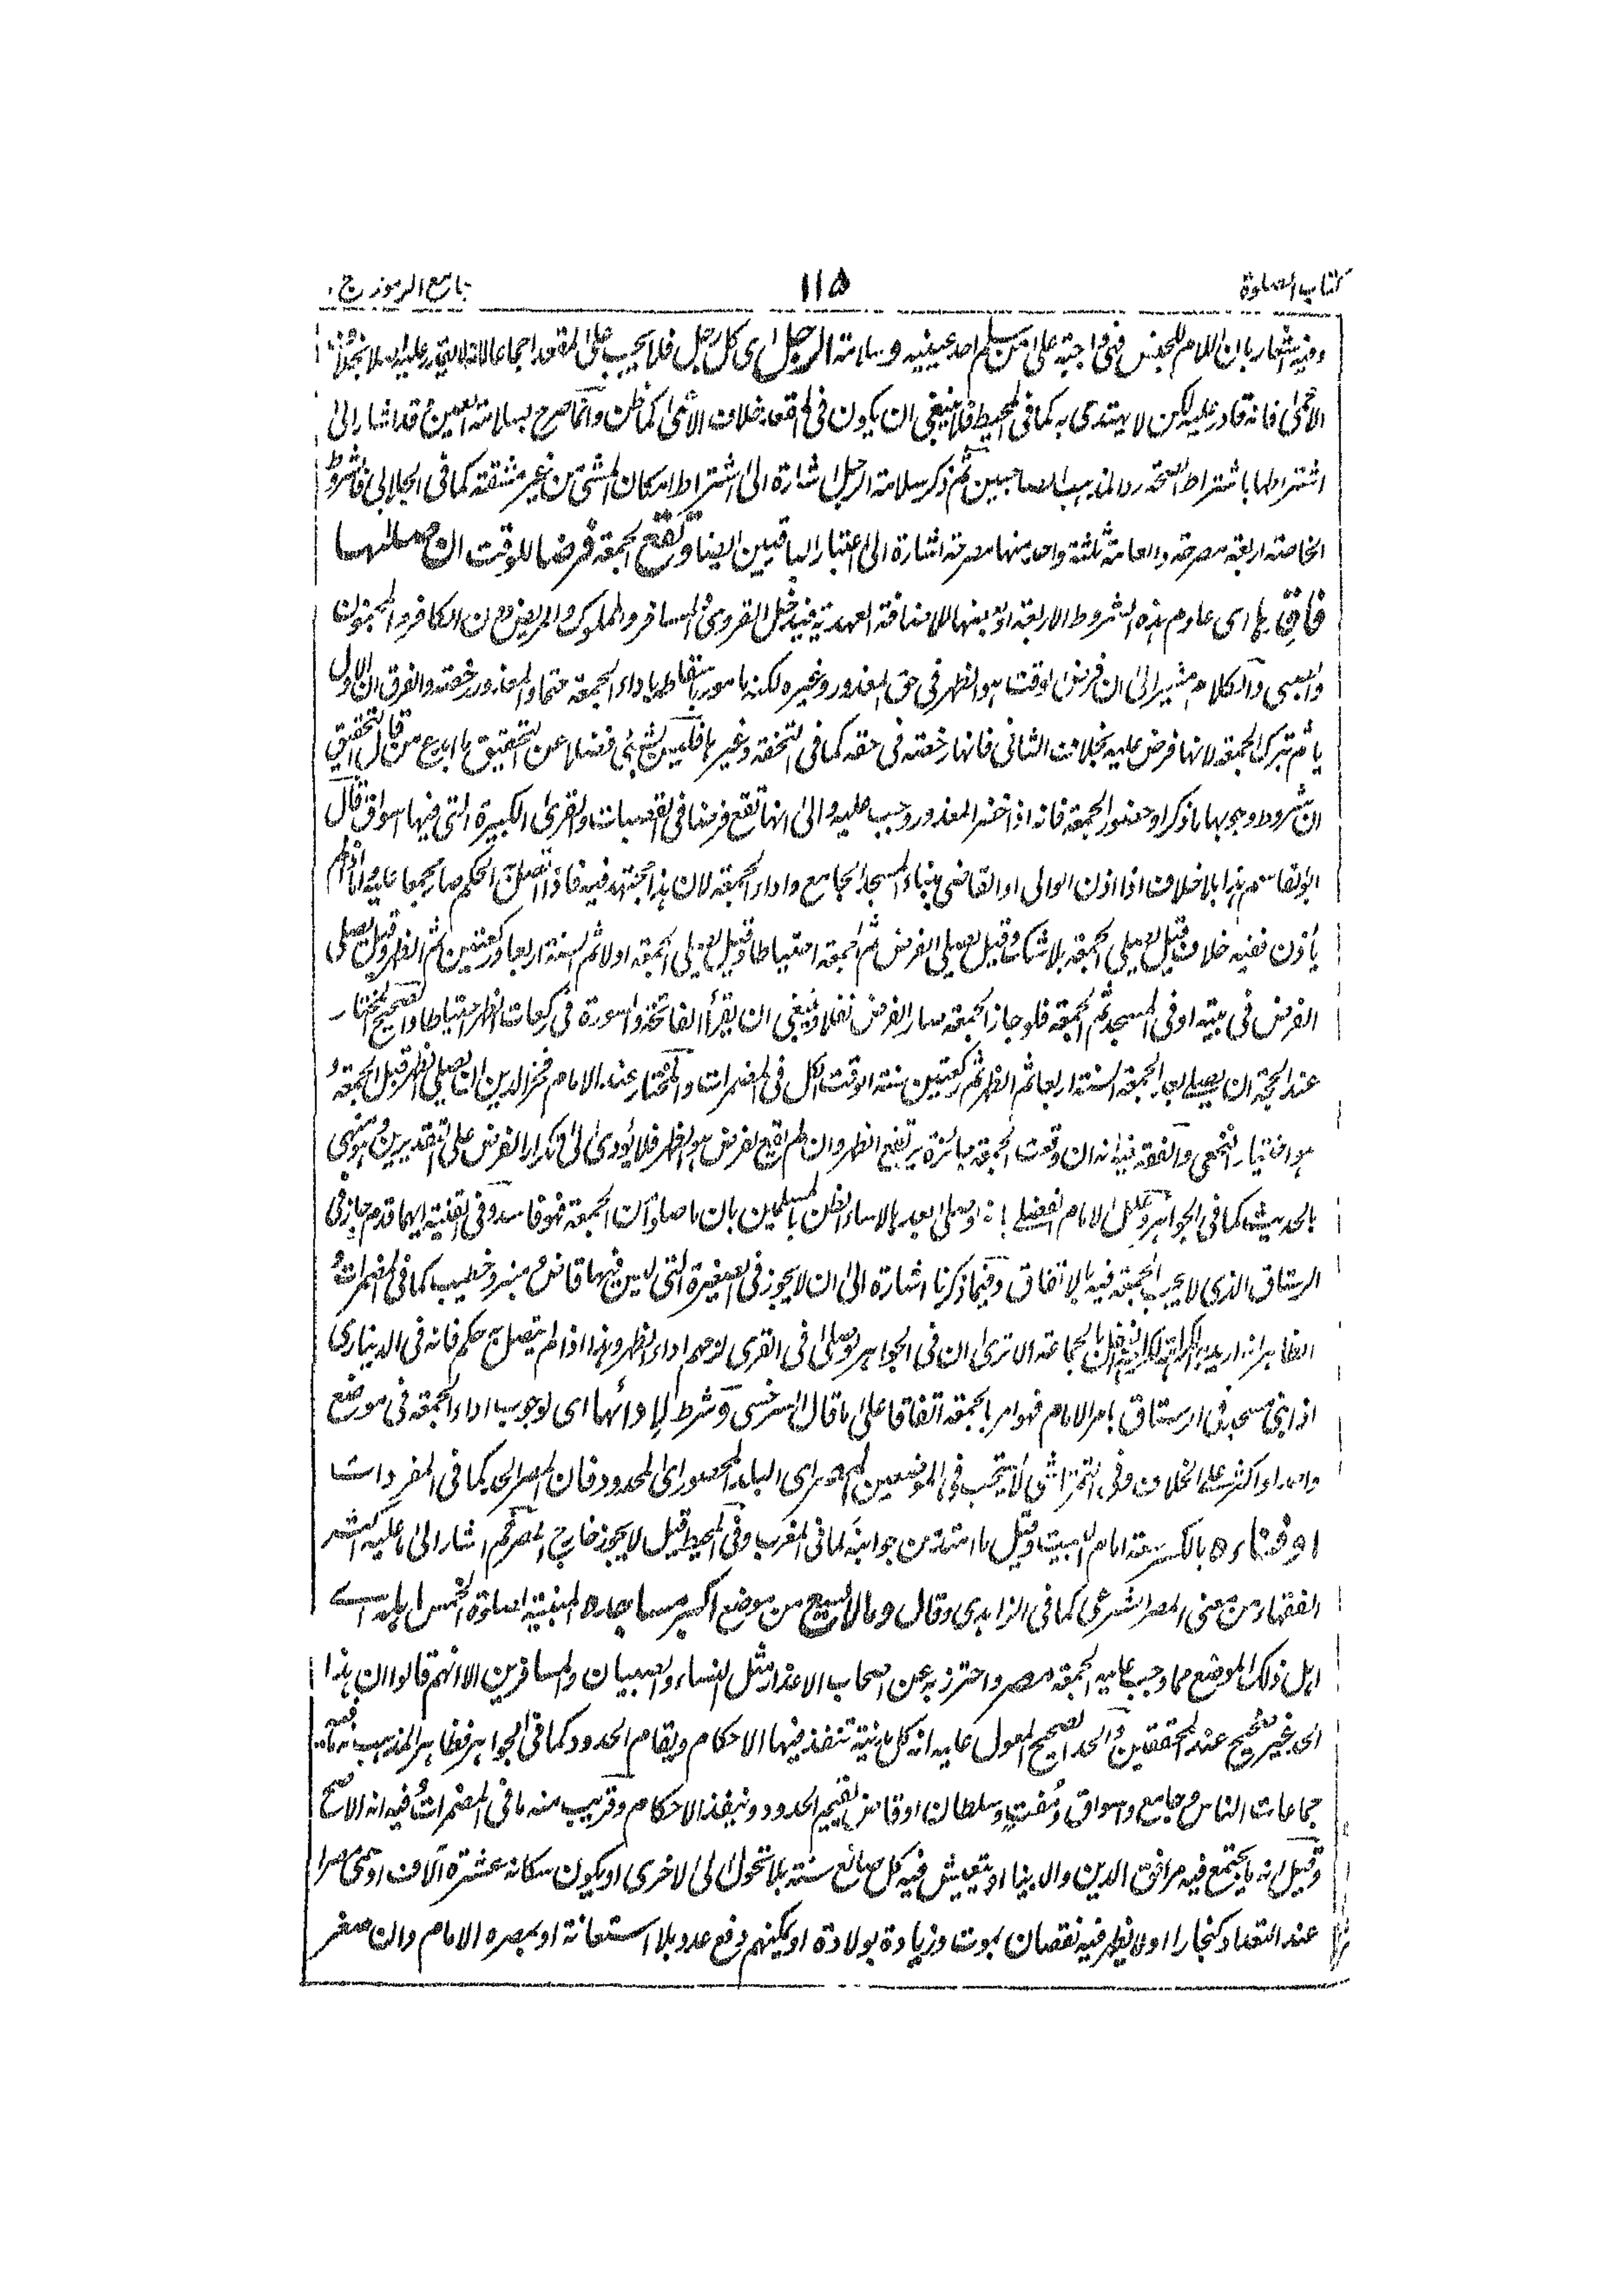 كتاب الصلوة ١١٥ جامع الرموز ج ١
وفيه اشعار بان اللام للجنس فهى واجبة على من سلم احد عينيه وسلامة الرجل اى كل رجل فلا يجب على المقعد اجماعا لانه لا يقدر عليه اصلا بخلاف
الاعمى فانه قادر عليه لكن لا يهتدى به كما فى المحيط فلا ينبغى ان يكون فى المقعد خلاف الاعمى كما ظن وانما صرح بسلامة العين وقد اشار الى
اشتراطها باشتراط الصحة ردا لمذهب الصاحبين ثم ذكر سلامة الرجل اشارة الى اشتراط امكان المشى من غير مشقة كما فى الجلالى فالشروط
الخاصة اربعة مصرحة والعامة ثلثة واحد منها مصرحة اشارة الى اعتبار الباقيين ايضا وتقع الجمعة فرضا للوقت ان صلاها
فاقدها اى عادم هذه الشروط الاربعة او بعضها للاضافة العهدية فيدخل القروى المسافر والمملوك والمريض دون الكافر والمجنون
والصبى والكلام مشير الى ان فرض الوقت هو الظهر فى حق المعذور وغيره لكنه مامور باسقاطه باداء الجمعة حتما والمعذور رخصة والفرق ان الاول
ياثم بترك الجمعة لانها فرض عليه بخلاف الثانى فانها رخصة فى حقه كما فى التحفة وغيرها فليس بشئ فضلا عن التحقيق ما ابدع من قال التحقيق
ان شروط وجوبها ما ذكر او حضور الجمعة فانه اذا حضر المعذور وجب عليه والى انها تقع فرضا فى القصبات والقرى الكبيرة التى فيها اسواق قال
ابو القاسم هذا بلا خلاف اذا اذن الوالى او القاضى ببناء المسجد الجامع واداء الجمعة لان هذا مجتهد فيه فاذا اتصل به الحكم صار مجمعا عليه واما اذا لم
ياذن ففيه خلاف قيل يصلى الجمعة بلا شك وقيل يصلى الفرض ثم الجمعة احتياطا وقيل يصلى الجمعة اولا ثم السنة اربعا وركعتين ثم الظهر وقيل يصلى
الفرض فى بيته او فى المسجد ثم الجمعة فلو جاز الجمعة صار الفرض نفلا وينبغى ان يقرأ الفاتحة والسورة فى ركعات الظهر احتياطا والصحيح المختار
عند الحجة ان يصلى بعد الجمعة السنة اربعا ثم الظهر ثم ركعتين سنة الوقت الكل فى المضمرات والمختار عند الامام فخر الدين ان يصلى الظهر قبل الجمعة و
هو اختيار النخعى والفقه فيه انه ان وقعت الجمعة جائزة يرتفع الظهر وان لم تقع فالفرض هو الظهر فلا يؤدى الى تكرار الفرض على التقديرين وهو منهى
بالحديث كما فى الجواهر وعلل الامام الفضلى بانه لو صلى بعدها لاساء الظن بالمسلمين بان ما صلوا من الجمعة فهو فاسد وفى القنية ايهما قدم جاز فى
الرستاق الذى لا يجب الجمعة فيه بالاتفاق وفيما ذكرنا اشارة الى ان لا يجوز فى الصغيرة التى ليس فيها قاض ومنبر وخطيب كما فى المضمرات و
الظاهر انه اريد به الكراهة لكراهة النفل بالجماعة الا ترى ان فى الجواهر لو صلى فى القرى لزمهم اداء الظهر وهذا اذا لم يتصل به حكم فانه فى الدينارى
اذا بنى مسجد فى الرستاق بامر الامام فهو امر بالجمعة اتفاقا على ما قال السرخسى وشرط لادائها اى لوجوب اداء الجمعة فى موضع
واحد او اكثر على الخلاف وفى التمرتاشى لا يجب فى الموضعين المصر اى البلد المحصور اى المحدود فان المصر الحد كما فى المفردات
او فناءه بالكسر سعة امام البيت وقيل ما امتد من جوانبه كما فى المغرب وفى المحيط قيل لا يجوز خارج المصر ثم اشار الى ما عليه اكثر
الفقهاء من معنى المصر الشرعى كما فى الزاهدى وقال وما لا يسع من موضع اكبر مساجده المبنية لصلوة الخمس اهله اے
اهل ذلك الموضع مما وجب عليه الجمعة مصر واحترز به عن اصحاب الاعذار مثل النساء والصبيان والمسافرين الا انهم قالوا ان هذا
الحد غير صحيح عند المحققين والحد الصحيح المعول عليه انه كل مدينة تنفذ فيها الاحكام ويقام الحدود كما فى الجواهر فظاهر المذهب انه ما فيه
جماعات الناس وجامع واسواق ومفت وسلطان او قاض يقيم الحدود وينفذ الاحكام وقريب منه ما فى المضمرات وفيه انه الاصح
وقيل انه ما يجتمع فيه مرافق الدين والدنيا او يتعيش فيه كل صانع سنة بلا تحول الى الاخرى او يكون سكانه عشرة آلاف او سمى مصرا
عند التعداد كبخارا او لا يظهر فيه نقصان بموت وزيادة بولادة او يمكنهم دفع عدو بلا استعانة او يمصره الامام وان صغر